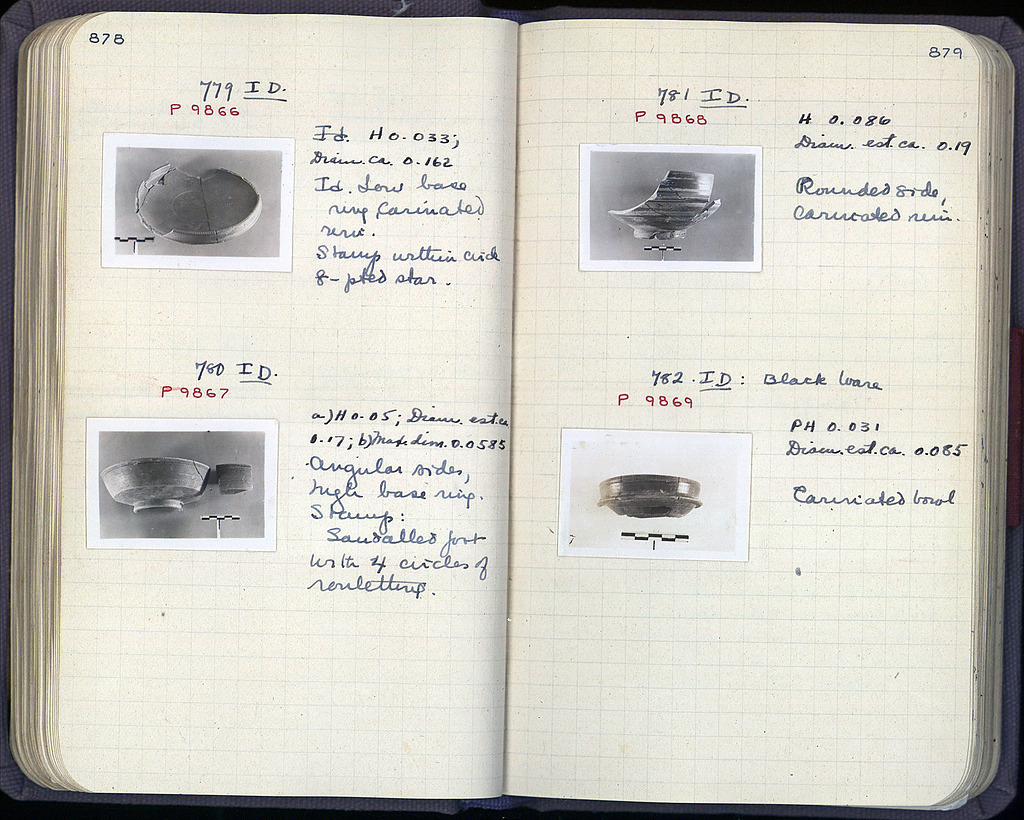 878
779 ID.
P 9866
Id. H 0.033;
Diam. ca. 0.162
Id. Low base
ring, carinated
rim.
Stamp within circle
8-pted star.
780 ID.
P 9867
a) H 0.05; Diam. est. ca
0.17; b) Max. dim. 0.0585
Angular sides,
high base ring.
Stamp:
Sandalled foot
with 4 circles of
rouletting.
879
781 ID.
P 9868
H 0.086
Diam. est. ca. 0.19
Rounded side,
carinated rim.
782. ID: Black Ware
P 9869
PH 0.031
Diam. est. ca. 0.085
Carinated bowl